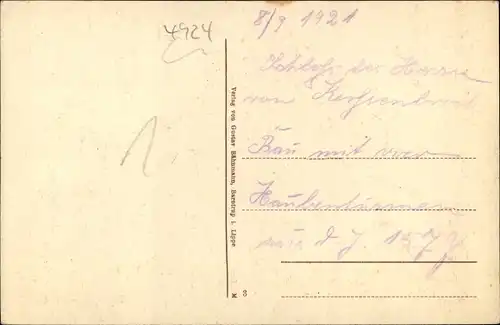 4924
8/9 1921
Schloss der Herren
von Kerssenbrock
Bau mit vier
Haubentürmen
aus d J. 1577
1
Verlag von Gustav Bähnmahn, Barntrup i. Lippe
M 3